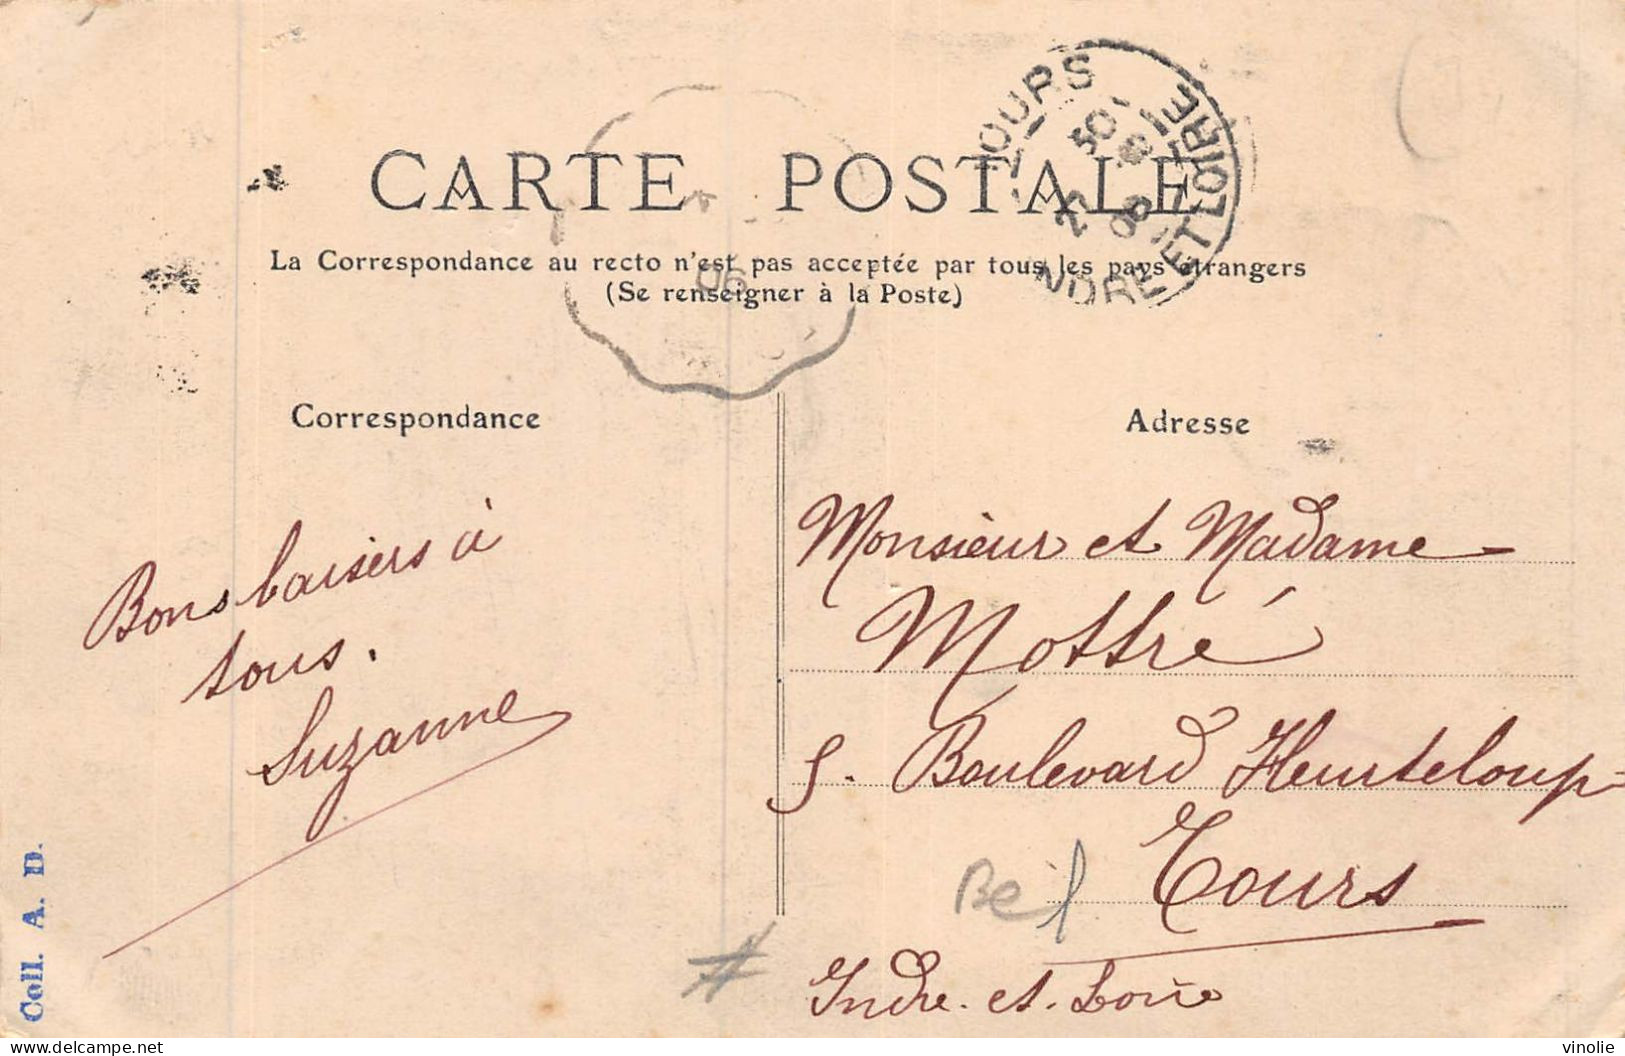 TOURS
INDRE ET LOIRE
CARTE POSTALE
La Correspondance au recto n'est pas acceptée par tous les pays étrangers
(Se renseigner à la Poste)
06
Correspondance
Adresse
Bons baisers à
tous.
Suzanne
Monsieur et Madame
Mottré
5. Boulevard Heurteloup
Tours
Indre-et-Loire
Coll. A. D.
delcampe.net
vinolie